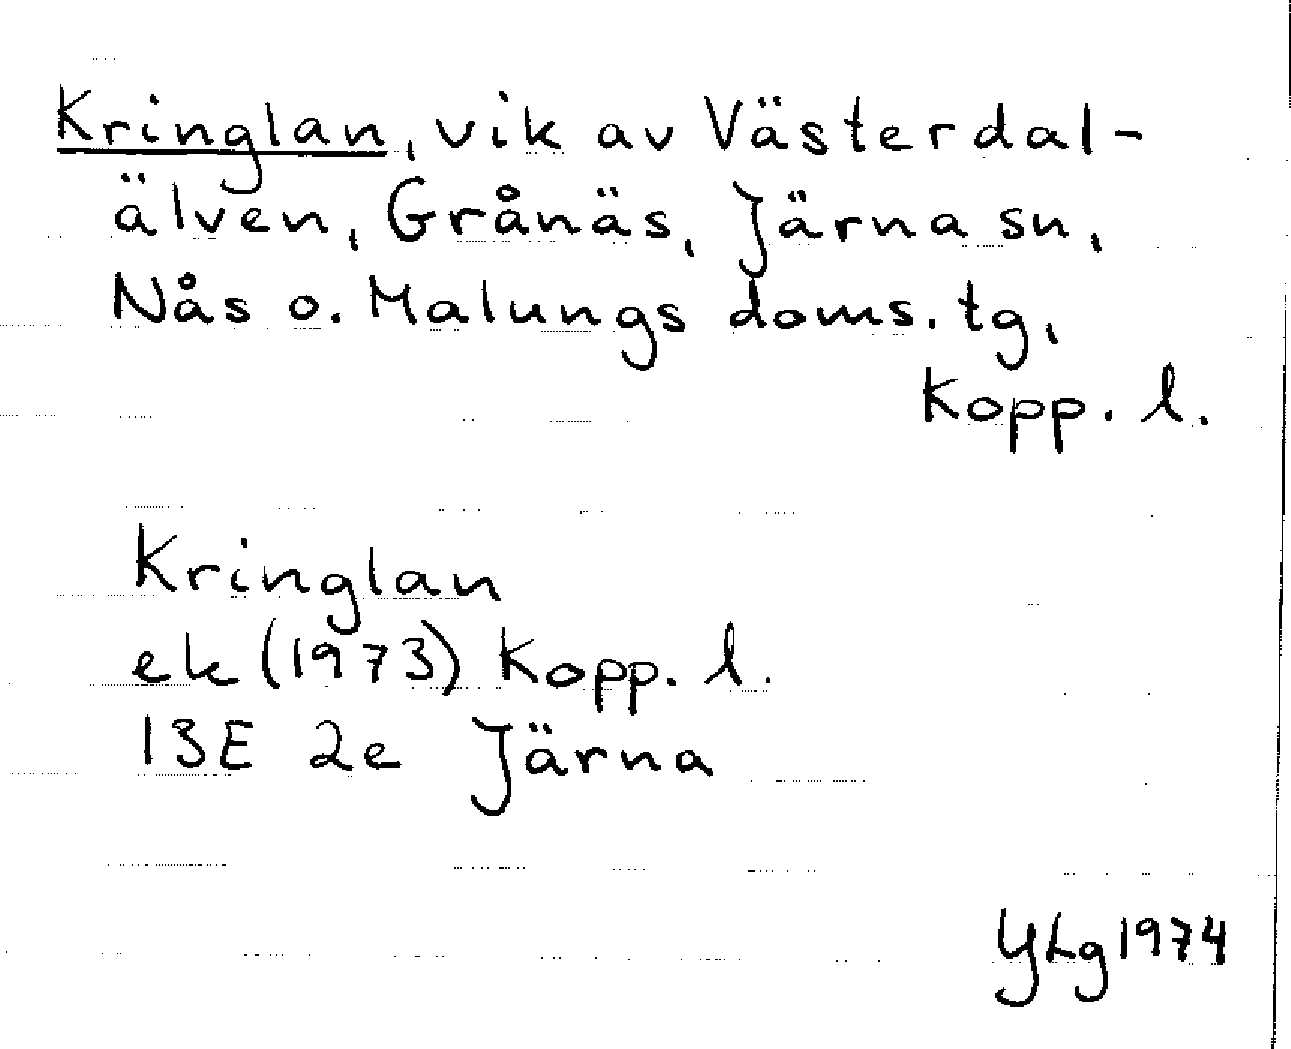 Kringlan, vik av Västerdal-
älven, Grånäs, Järna sn,
Nås o. Malungs doms. tg,
Kopp. l.
Kringlan
ek (1973) Kopp. l.
13E 2e Järna
YLg 1974